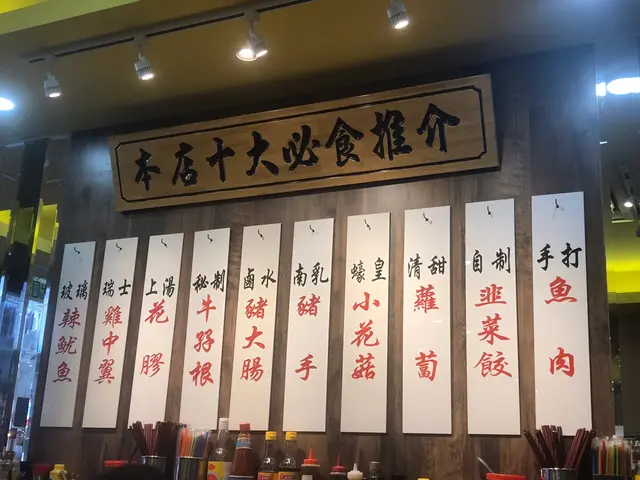 本店十大必食推介
玻璃
辣魷魚
瑞士
雞中翼
上湯
花膠
秘制
牛孖根
鹵水
豬大腸
南乳
豬手
蠔皇
小花菇
清甜
蘿蔔
自制
韮菜餃
手打
魚肉